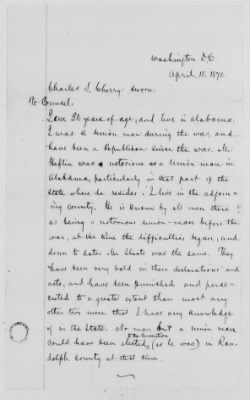 Washington D C
April, 18. 1871.
Charles S. Cherry sworn
To Counsel.
I am 26 years of age, and live in Alabama.
I was a Union man during the war, and
have been a Republican since the war. Mr
Heflin was notorious as a Union man in
Alabama, particularly in that part of the
State where he resides. I live in the adjoin-
ing County. He is known by all men there
as being a notorious union-man before the
war, at the time the difficulties began, and
down to date. Mr Sheats was the same. They
have been very bold in their declarations and
acts, and have been punished and perse-
cuted to a greater extent than most any
other two men that I have any knowledge
of in the State. No man but a union man
to the Convention
could have been elected, (as he was) in Ran-
dolph County at that time.